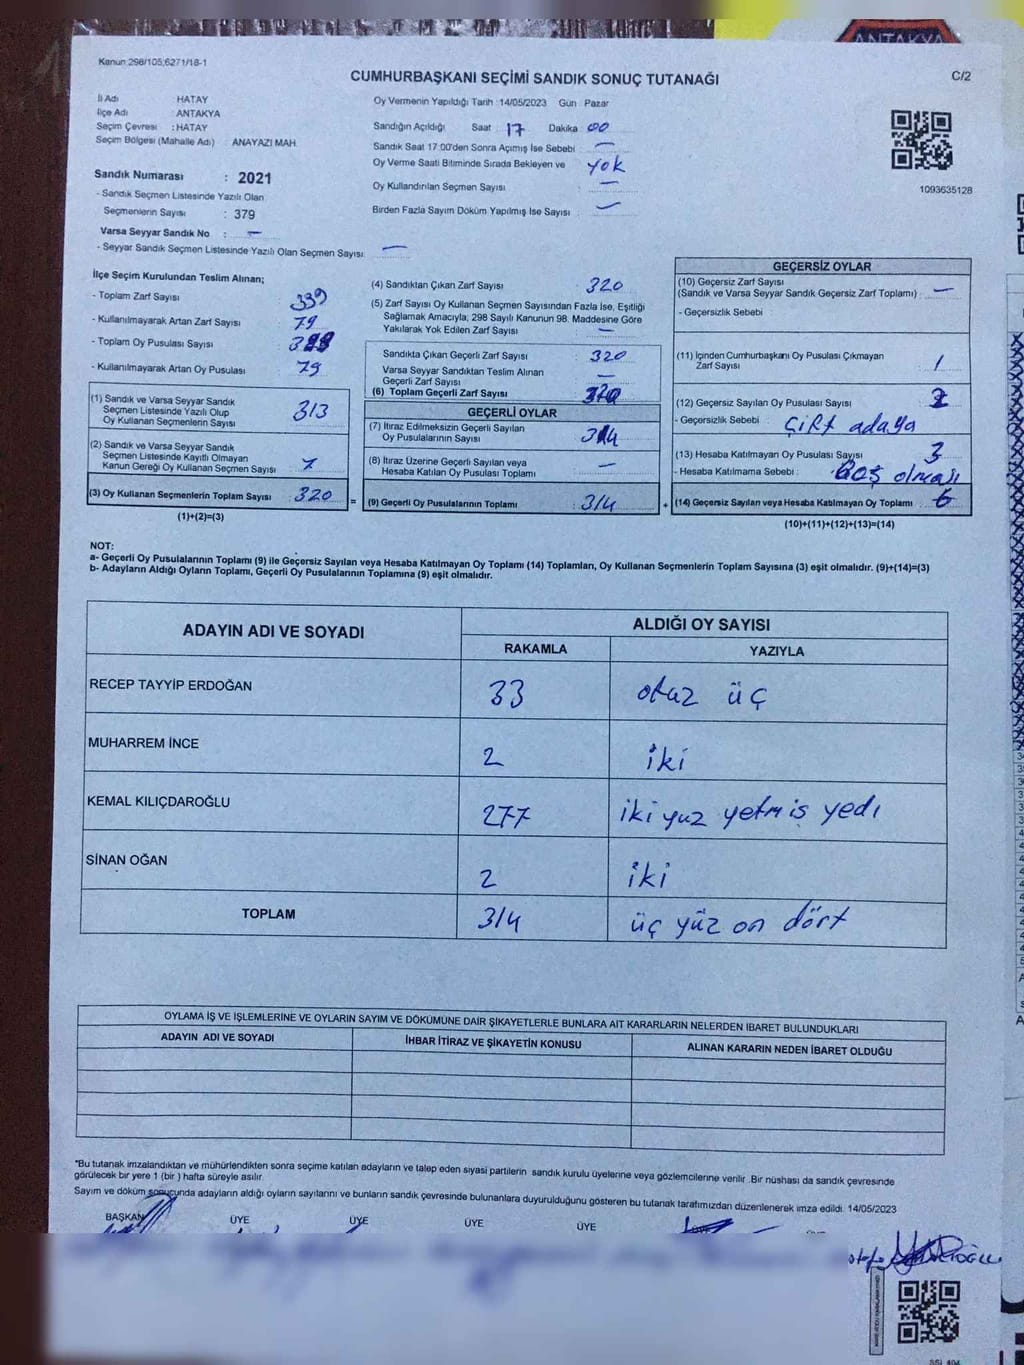 ANTAKYA
Kanun 298/105;6271/18-1
CUMHURBAŞKANI SEÇİMİ SANDIK SONUÇ TUTANAĞI
C/2
İl Adı HATAY
İlçe Adı ANTAKYA
Seçim Çevresi : HATAY
Seçim Bölgesi (Mahalle Adı) : ANAYAZI MAH
Sandık Numarası : 2021
- Sandık Seçmen Listesinde Yazılı Olan
Seçmenlerin Sayısı : 379
Varsa Seyyar Sandık No : —
- Seyyar Sandık Seçmen Listesinde Yazılı Olan Seçmen Sayısı: —
Oy Vermenin Yapıldığı Tarih :14/05/2023 Gün Pazar
Sandığın Açıldığı Saat 17 Dakika 00
Sandık Saat 17:00'den Sonra Açımış İse Sebebi : —
Oy Verme Saati Bitiminde Sırada Bekleyen ve yok
Oy Kullandırılan Seçmen Sayısı : —
Birden Fazla Sayım Döküm Yapılmış İse Sayısı : —
1093635128
İlçe Seçim Kurulundan Teslim Alınan;
- Toplam Zarf Sayısı 339
- Kullanılmayarak Artan Zarf Sayısı 79
- Toplam Oy Pusulası Sayısı
- Kullanılmayarak Artan Oy Pusulası 79
(1) Sandık ve Varsa Seyyar Sandık
Seçmen Listesinde Yazılı Olup
Oy Kullanan Seçmenlerin Sayısı 313
(2) Sandık ve Varsa Seyyar Sandık
Seçmen Listesinde Kayıtlı Olmayan
Kanun Gereği Oy Kullanan Seçmen Sayısı 7
(3) Oy Kullanan Seçmenlerin Toplam Sayısı 320 =
(1)+(2)=(3)
(4) Sandıktan Çıkan Zarf Sayısı 320
(5) Zarf Sayısı Oy Kullanan Seçmen Sayısından Fazla İse, Eşitliği
Sağlamak Amacıyla; 298 Sayılı Kanunun 98. Maddesine Göre
Yakılarak Yok Edilen Zarf Sayısı : —
Sandıkta Çıkan Geçerli Zarf Sayısı 320
Varsa Seyyar Sandıktan Teslim Alınan —
Geçerli Zarf Sayısı
(6) Toplam Geçerli Zarf Sayısı 320
GEÇERLİ OYLAR
(7) İtiraz Edilmeksizin Geçerli Sayılan
Oy Pusulalarının Sayısı 314
(8) İtiraz Üzerine Geçerli Sayılan veya
Hesaba Katılan Oy Pusulası Toplamı —
(9) Geçerli Oy Pusulalarının Toplamı : 314 +
GEÇERSİZ OYLAR
(10) Geçersiz Zarf Sayısı
(Sandık ve Varsa Seyyar Sandık Geçersiz Zarf Toplamı) : —
- Geçersizlik Sebebi :
(11) İçinden Cumhurbaşkanı Oy Pusulası Çıkmayan
Zarf Sayısı 1
(12) Geçersiz Sayılan Oy Pusulası Sayısı 2
- Geçersizlik Sebebi : Çift adaya
(13) Hesaba Katılmayan Oy Pusulası Sayısı 3
- Hesaba Katılmama Sebebi : Boş olması
(14) Geçersiz Sayılan veya Hesaba Katılmayan Oy Toplamı : 6
(10)+(11)+(12)+(13)=(14)
NOT:
a- Geçerli Oy Pusulalarının Toplamı (9) ile Geçersiz Sayılan veya Hesaba Katılmayan Oy Toplamı (14) Toplamları, Oy Kullanan Seçmenlerin Toplam Sayısına (3) eşit olmalıdır. (9)+(14)=(3)
b- Adayların Aldığı Oyların Toplamı, Geçerli Oy Pusulalarının Toplamına (9) eşit olmalıdır.
ADAYIN ADI VE SOYADI ALDIĞI OY SAYISI
RAKAMLA YAZIYLA
RECEP TAYYİP ERDOĞAN 33 otuz üç
MUHARREM İNCE 2 iki
KEMAL KILIÇDAROĞLU 277 iki yuz yetmiş yedı
SİNAN OĞAN 2 iki
TOPLAM 314 üç yüz on dört
OYLAMA İŞ VE İŞLEMLERİNE VE OYLARIN SAYIM VE DÖKÜMÜNE DAİR ŞİKAYETLERLE BUNLARA AİT KARARLARIN NELERDEN İBARET BULUNDUKLARI
ADAYIN ADI VE SOYADI İHBAR İTİRAZ VE ŞİKAYETİN KONUSU ALINAN KARARIN NEDEN İBARET OLDUĞU
*Bu tutanak imzalandıktan ve mühürlendikten sonra seçime katılan adayların ve talep eden siyasi partilerin sandık kurulu üyelerine veya gözlemcilerine verilir. Bir nüshası da sandık çevresinde
görülecek bir yere 1 (bir ) hafta süreyle asılır.
Sayım ve döküm sonucunda adayların aldığı oyların sayılarını ve bunların sandık çevresinde bulunanlara duyurulduğunu gösteren bu tutanak tarafımızdan düzenlenerek imza edildi. 14/05/2023
BAŞKAN ÜYE ÜYE ÜYE ÜYE